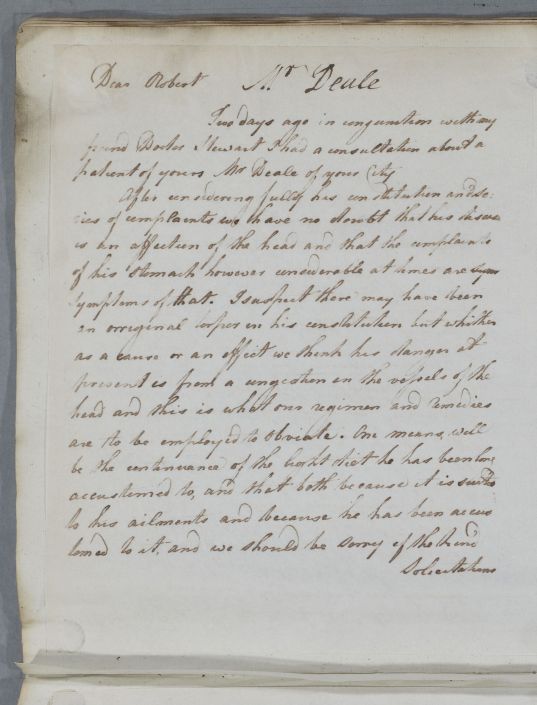 Dear Robert Mr Deale
Two days ago in conjunction with my
friend Doctor Stewart I had a consultation about a
patient of yours Mr Deale of your City
After considering fully his constitution and se:
ries of complaints we have no doubt that his disease
is an affection of the head and that the complaints
of his stomach however considerable at times are
symptoms of that. I suspect there may have been
an original torpor in his constitution but whither
as a cause or an effect we think his danger at
present is from a congestion in the vessels of the
head and this is what our regimen and remedies
are to be employed to obviate. One means will
be the continuance of the light diet he has been long
accustomed to, and that both because it is suited
to his ailments and because he has been accus
tomed to it, and we should be sorry if the kind
Solicitations